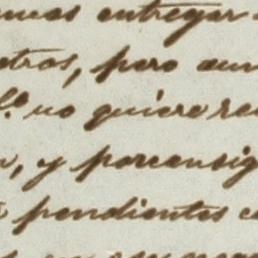 entregar
etros, pero aun
no quiere re
, y porconsig
pendientes e